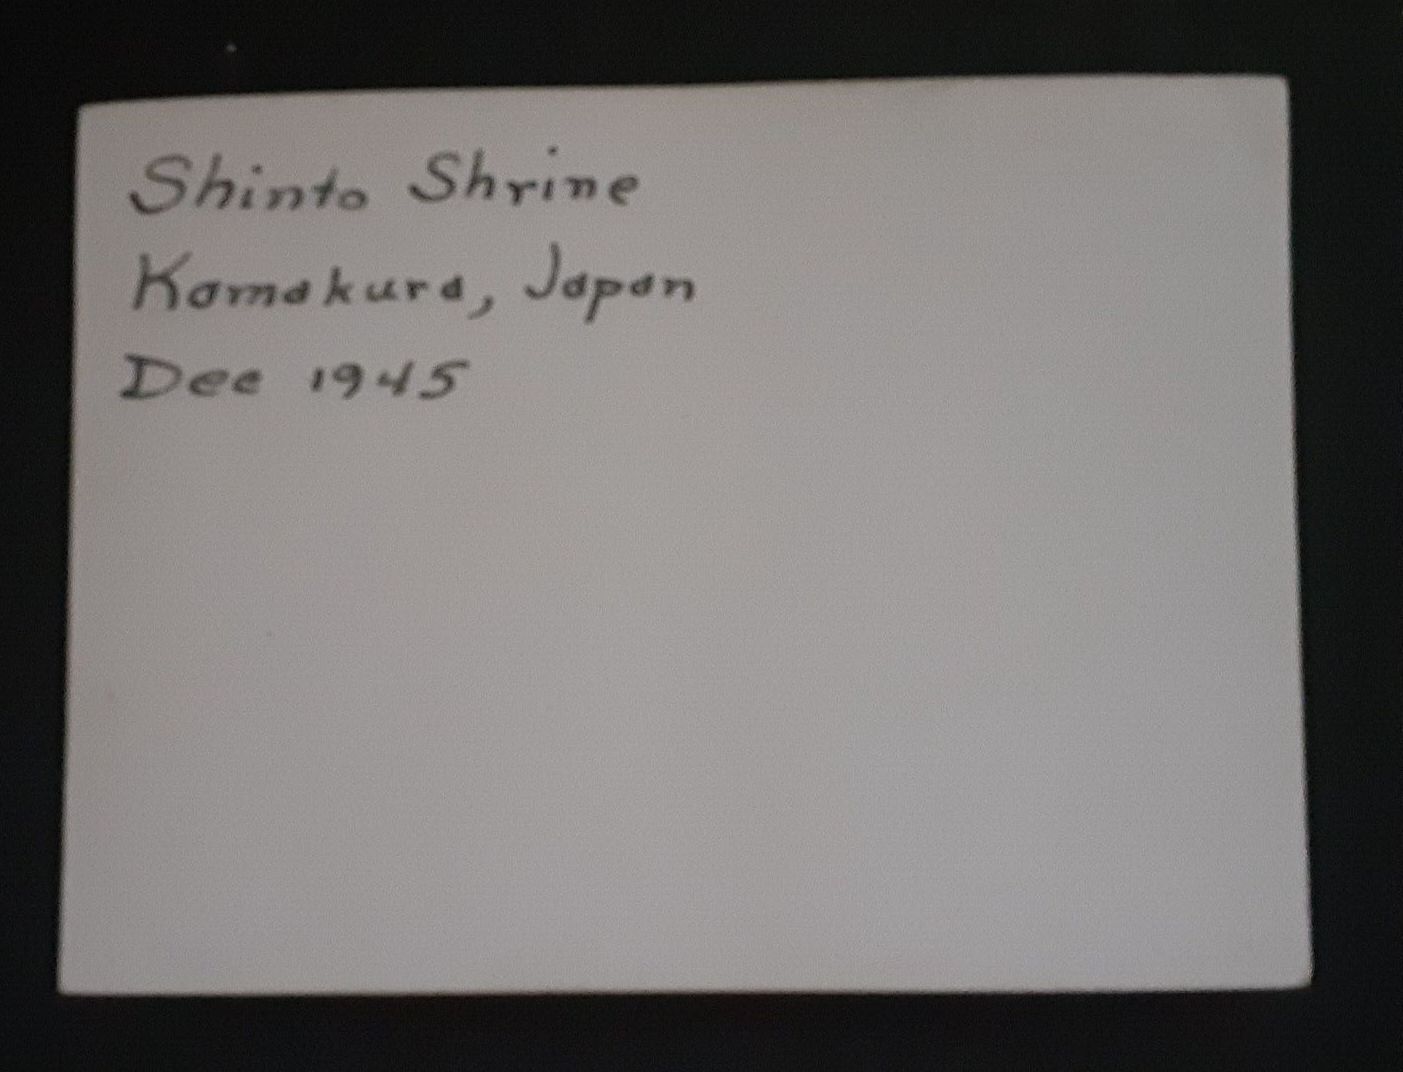 Shinto Shrine
Kamakura, Japan
Dec 1945